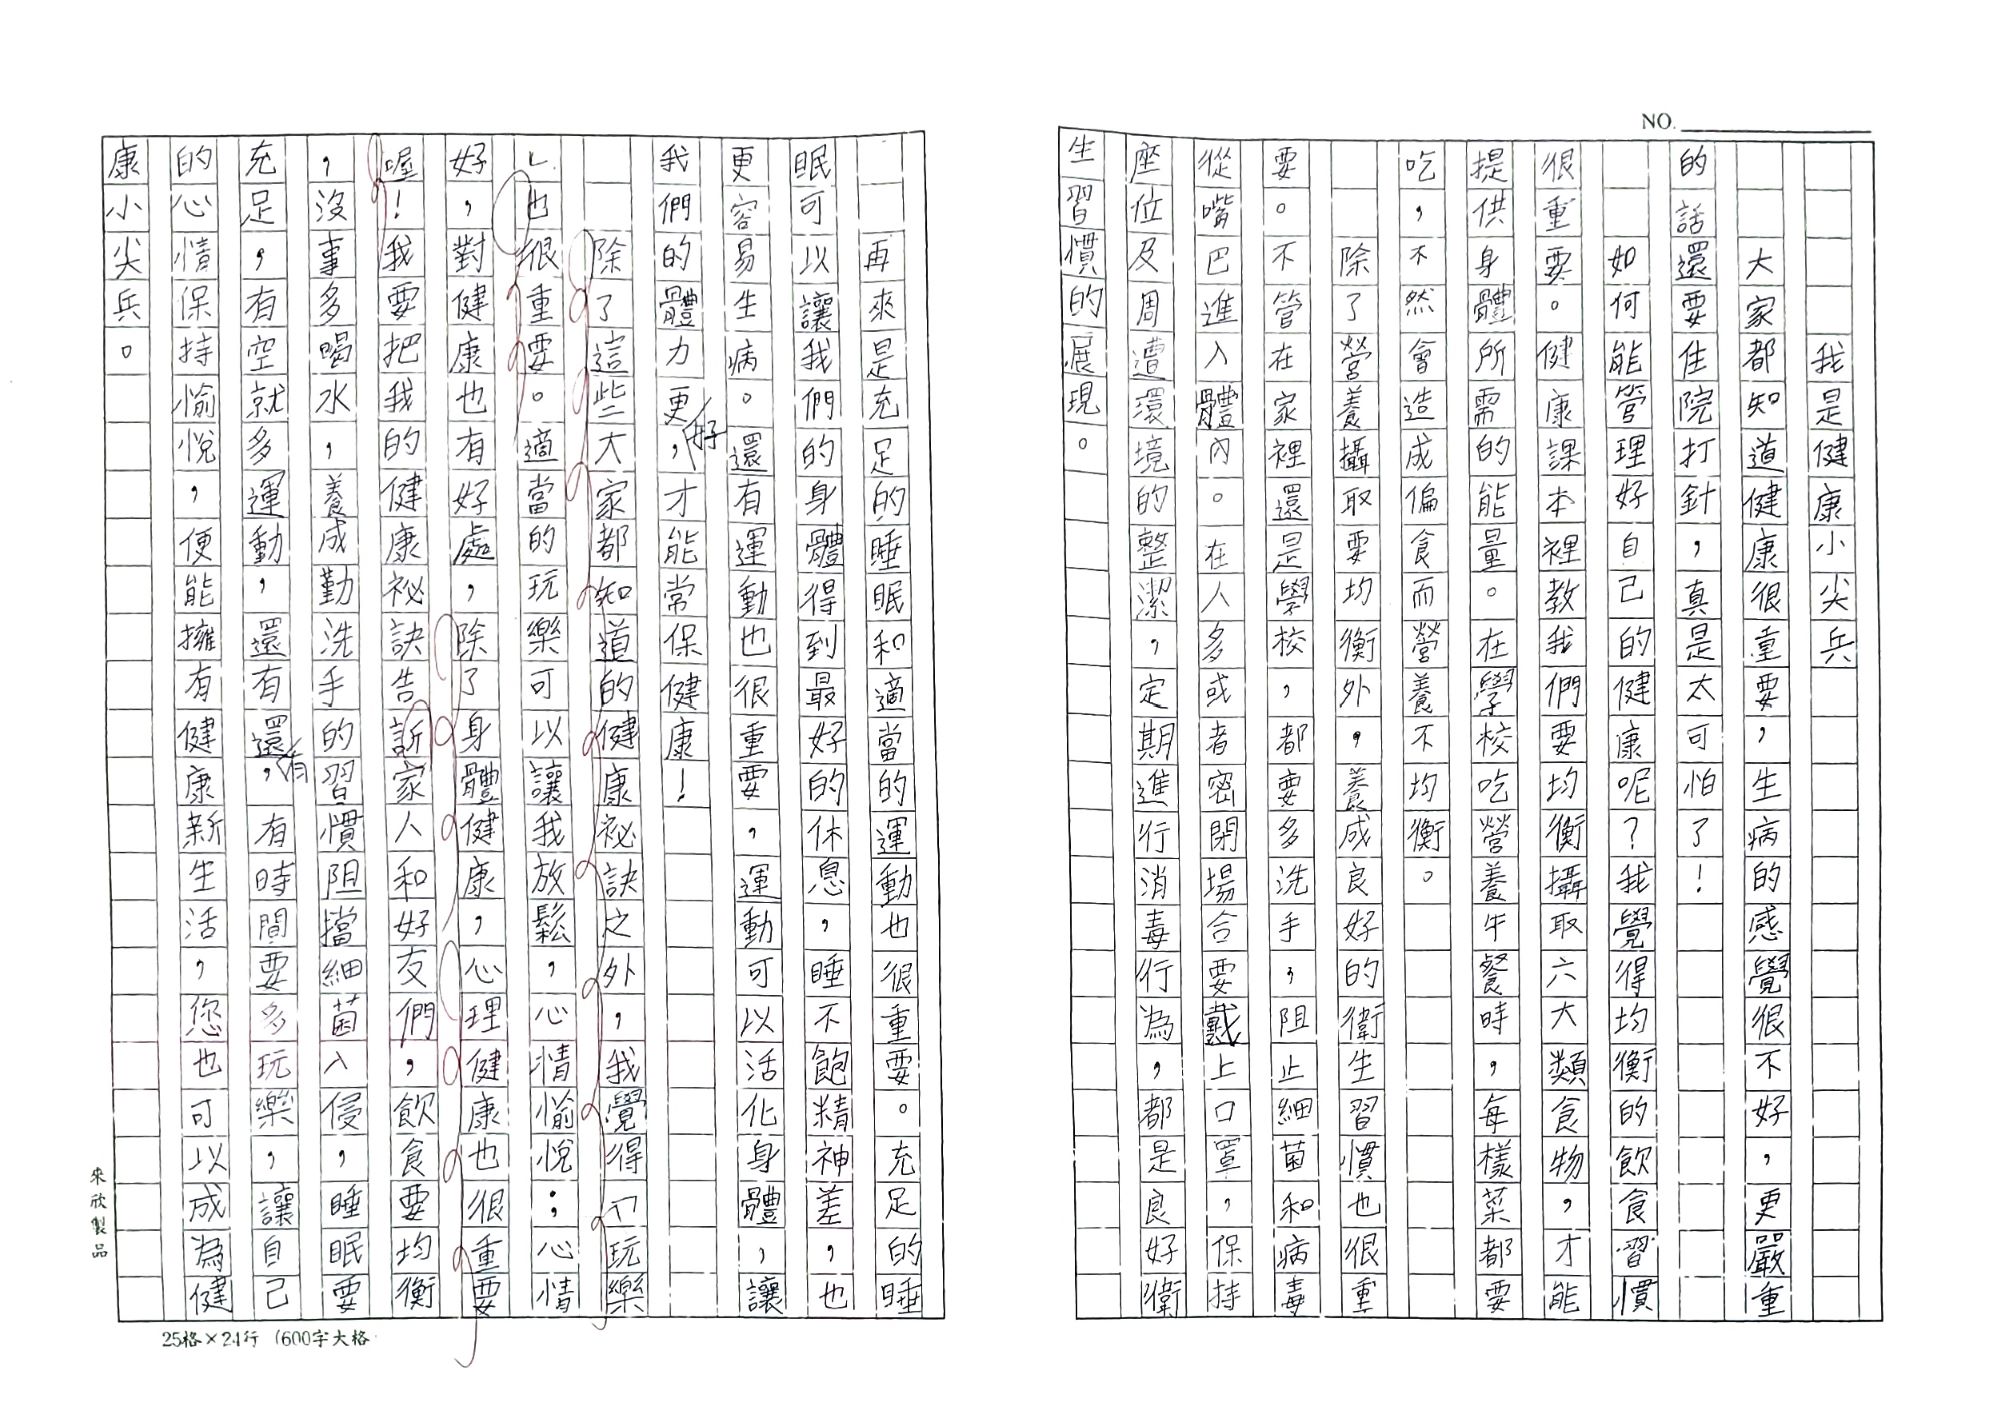 NO.
我是健康小尖兵
大家都知道健康很重要，生病的感覺很不好，更嚴重
的話還要住院打針，真是太可怕了！
如何能管理好自己的健康呢？我覺得均衡的飲食習慣
很重要。健康課本裡教我們要均衡攝取六大類食物，才能
提供身體所需的能量。在學校吃營養午餐時，每樣菜都要
吃，不然會造成偏食而營養不均衡。
除了營養攝取要均衡外，養成良好的衛生習慣也很重
要。不管在家裡還是學校，都要多洗手，阻止細菌和病毒
從嘴巴進入體內。在人多或者密閉場合要戴上口罩，保持
座位及周遭環境的整潔，定期進行消毒行為，都是良好衛
生習慣的展現。
再來是充足的睡眠和適當的運動也很重要。充足的睡
眠可以讓我們的身體得到最好的休息，睡不飽精神差，也
更容易生病。還有運動也很重要，運動可以活化身體，讓
我們的體力更好，才能常保健康！
除了這些大家都知道的健康祕訣之外，我覺得「玩樂
」也很重要。適當的玩樂可以讓我放鬆，心情愉悅；心情
好，對健康也有好處，除了身體健康，心理健康也很重要
喔！我要把我的健康祕訣告訴家人和好友們，飲食要均衡
，沒事多喝水，養成勤洗手的習慣阻擋細菌入侵，睡眠要
充足，有空就多運動，還有還有，有時間要多玩樂，讓自己
的心情保持愉悅，便能擁有健康新生活，您也可以成為健
康小尖兵。
來欣製品
25格×24行（600字大格